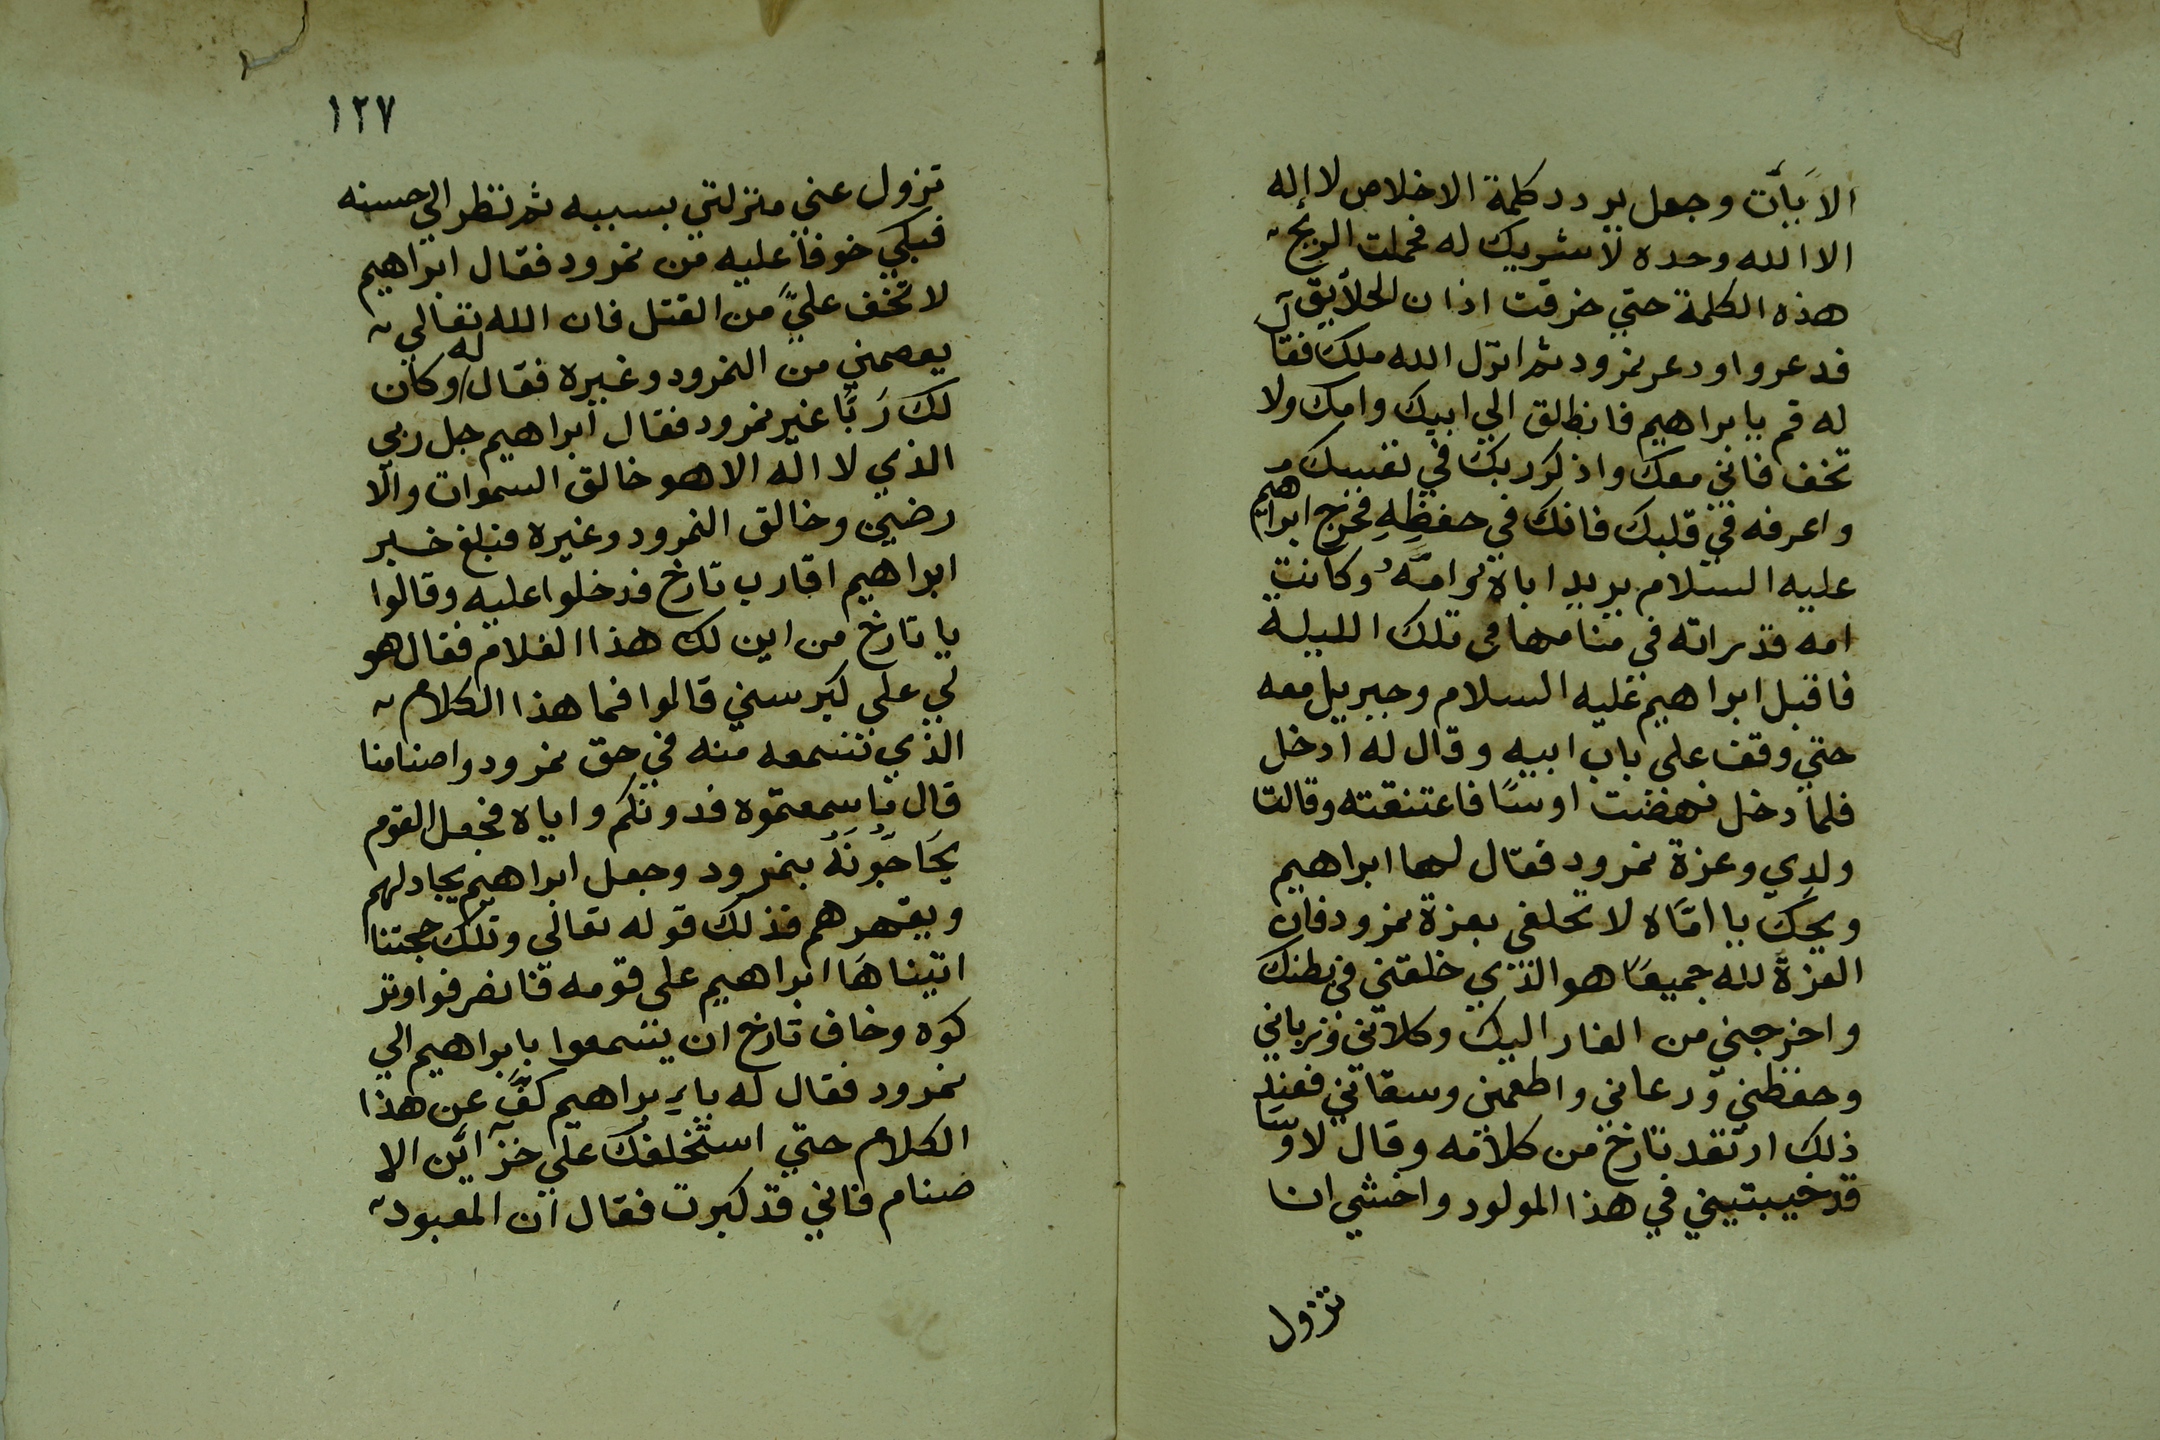 الاَيأت وجعل يردد كلمة الاخلاص لا إله
الا الله وحده لا شريك له فحملت الريح
هذه الكلمة حتي خرقت اذان الخلأيق
فدعروا ودعر نمرود ثم انزل الله ملك فقال
له قم يا براهيم فانطلق الي ابيك وامك ولا
تخف فاني معك واذكر ربك في نفسك
واعرفه في قلبك فانك في حفظِهِ فخرج ابراهيم
عليه السلام يريد اباه وامَّه وكانت
امه قد راته في منامها في تلك الليلة
فاقبل ابراهيم عليه السلام وجبريل معه
حتي وقف على باب ابيه وقال له ادخل
فلما دخل نهضت اوسًا فاعتنقته وقالت
ولدي وعزة نمرود فقال لها ابراهيم
ويحك يا امَّاه لا تحلفي بعزة نمرود فان
العزة لله جميعًا هو الذي خلقني في بطنك
واخرجني من الغار اليك وكلاني ورباني
وحفظني ورعاني واطعمني وسقاني فعند
ذلك ارتعد تارخ من كلامه وقال لاوسًا
قد خيبتيني في هذا المولود واخشي ان
تزول
١٢٧
تزول عني منزلتي بسببه ثم نظر الي حسنه
فبكي خوفا عليه من نمرود فقال ابراهيم
لا تخف عليَّ من القتل فان الله تعالي
يعصمني من النمرود وغيره فقال له وكان
لك رَبًّا غير نمرود فقال ابراهيم جل ربي
الذي لا اله الا هو خالق السموات والا
رضين وخالق النمرود وغيره فبلغ خبر
ابراهيم اقارب تارخ فدخلوا عليه وقالوا
يا تارخ من اين لك هذا الغلام فقال هو
لي على كبر سني قالوا فما هذا الكلام
الذي نسمعه منه في حق نمرود واصنامنا
قال ما سمعتموه فدونكم واياه فجعل القوم
يحَاجّونَهُ بنمرود وجعل ابراهيم يجادلهم
ويقهرهم فذلك قوله تعالي وتلك حجتنا
اتيناهَا ابراهيم على قومه فانصرفوا وتر
كوه وخاف تارخ ان يسمعوا بابراهيم الي
نمرود فقال له يا براهيم كفَّ عن هذا
الكلام حتي استخلفك علي خزآاين الا
صنام فاني قد كبرت فقال ان المعبود